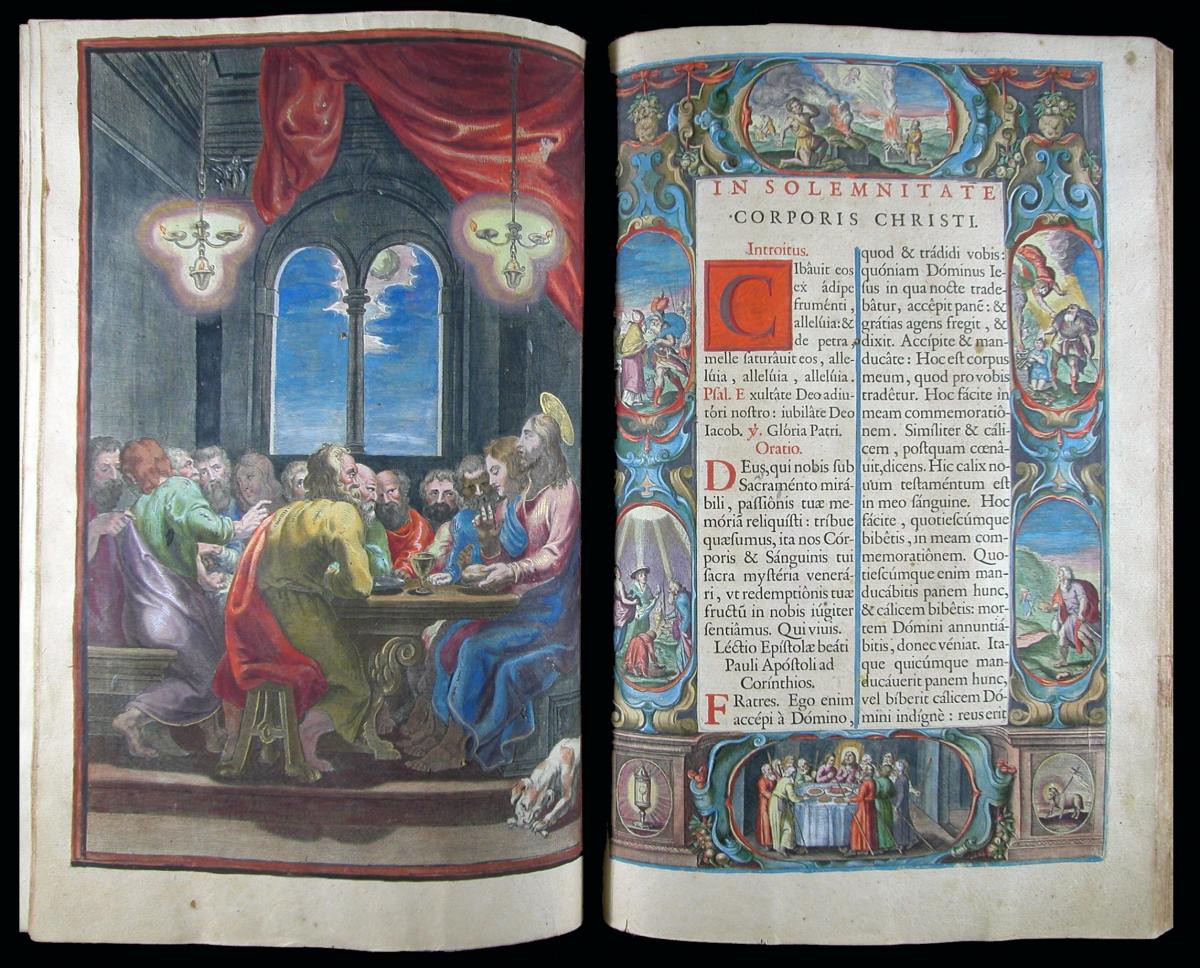 IN SOLEMNITATE
CORPORIS CHRISTI.
Introitus.
CIbâuit eos
ex ádipe
fruménti,
allelúia: &
de petra,
melle saturâuit eos, alle-
lúia, allelúia, allelúia.
Psal. Exultáte Deo adiu-
tóri nostro: iubiláte Deo
Iacob. ℣. Glória Patri.
Oratio.
DEus, qui nobis sub
Sacraménto mirá-
bili, passiônis tuæ me-
móriã reliquisti: tríbue
quæsumus, ita nos Cór-
poris & Sánguinis tui
sacra mystéria venerá-
ri, vt redemptiônis tuæ
fructũ in nobis iúgiter
sentiâmus. Qui viuis.
Léctio Epístolæ beáti
Pauli Apóstoli ad
Corínthios.
FRatres. Ego enim
accépi à Dómino,
quod & trádidi vobis:
quóniam Dóminus Ie-
sus in qua nocte trade-
bâtur, accêpit panẽ: &
grátias agens fregit, &
dixit. Accípite & man-
ducâte: Hoc est corpus
meum, quod pro vobis
tradêtur. Hoc fácite in
meam commemoratiô-
nem. Simíliter & cáli-
cem, postquam cœnâ-
uit, dicens. Hic calix no-
uum testaméntum est
in meo sánguine. Hoc
fácite, quotiescúmque
bibêtis, in meam com-
memoratiônem. Quo-
tiescúmque enim man-
ducábitis panem hunc,
& cálicem bibêtis: mor-
tem Dómini annuntiá-
bitis, donec véniat. Ita-
que quicúmque man-
ducáuerit panem hunc,
vel bíberit cálicem Dó-
mini indígnè: reus erit